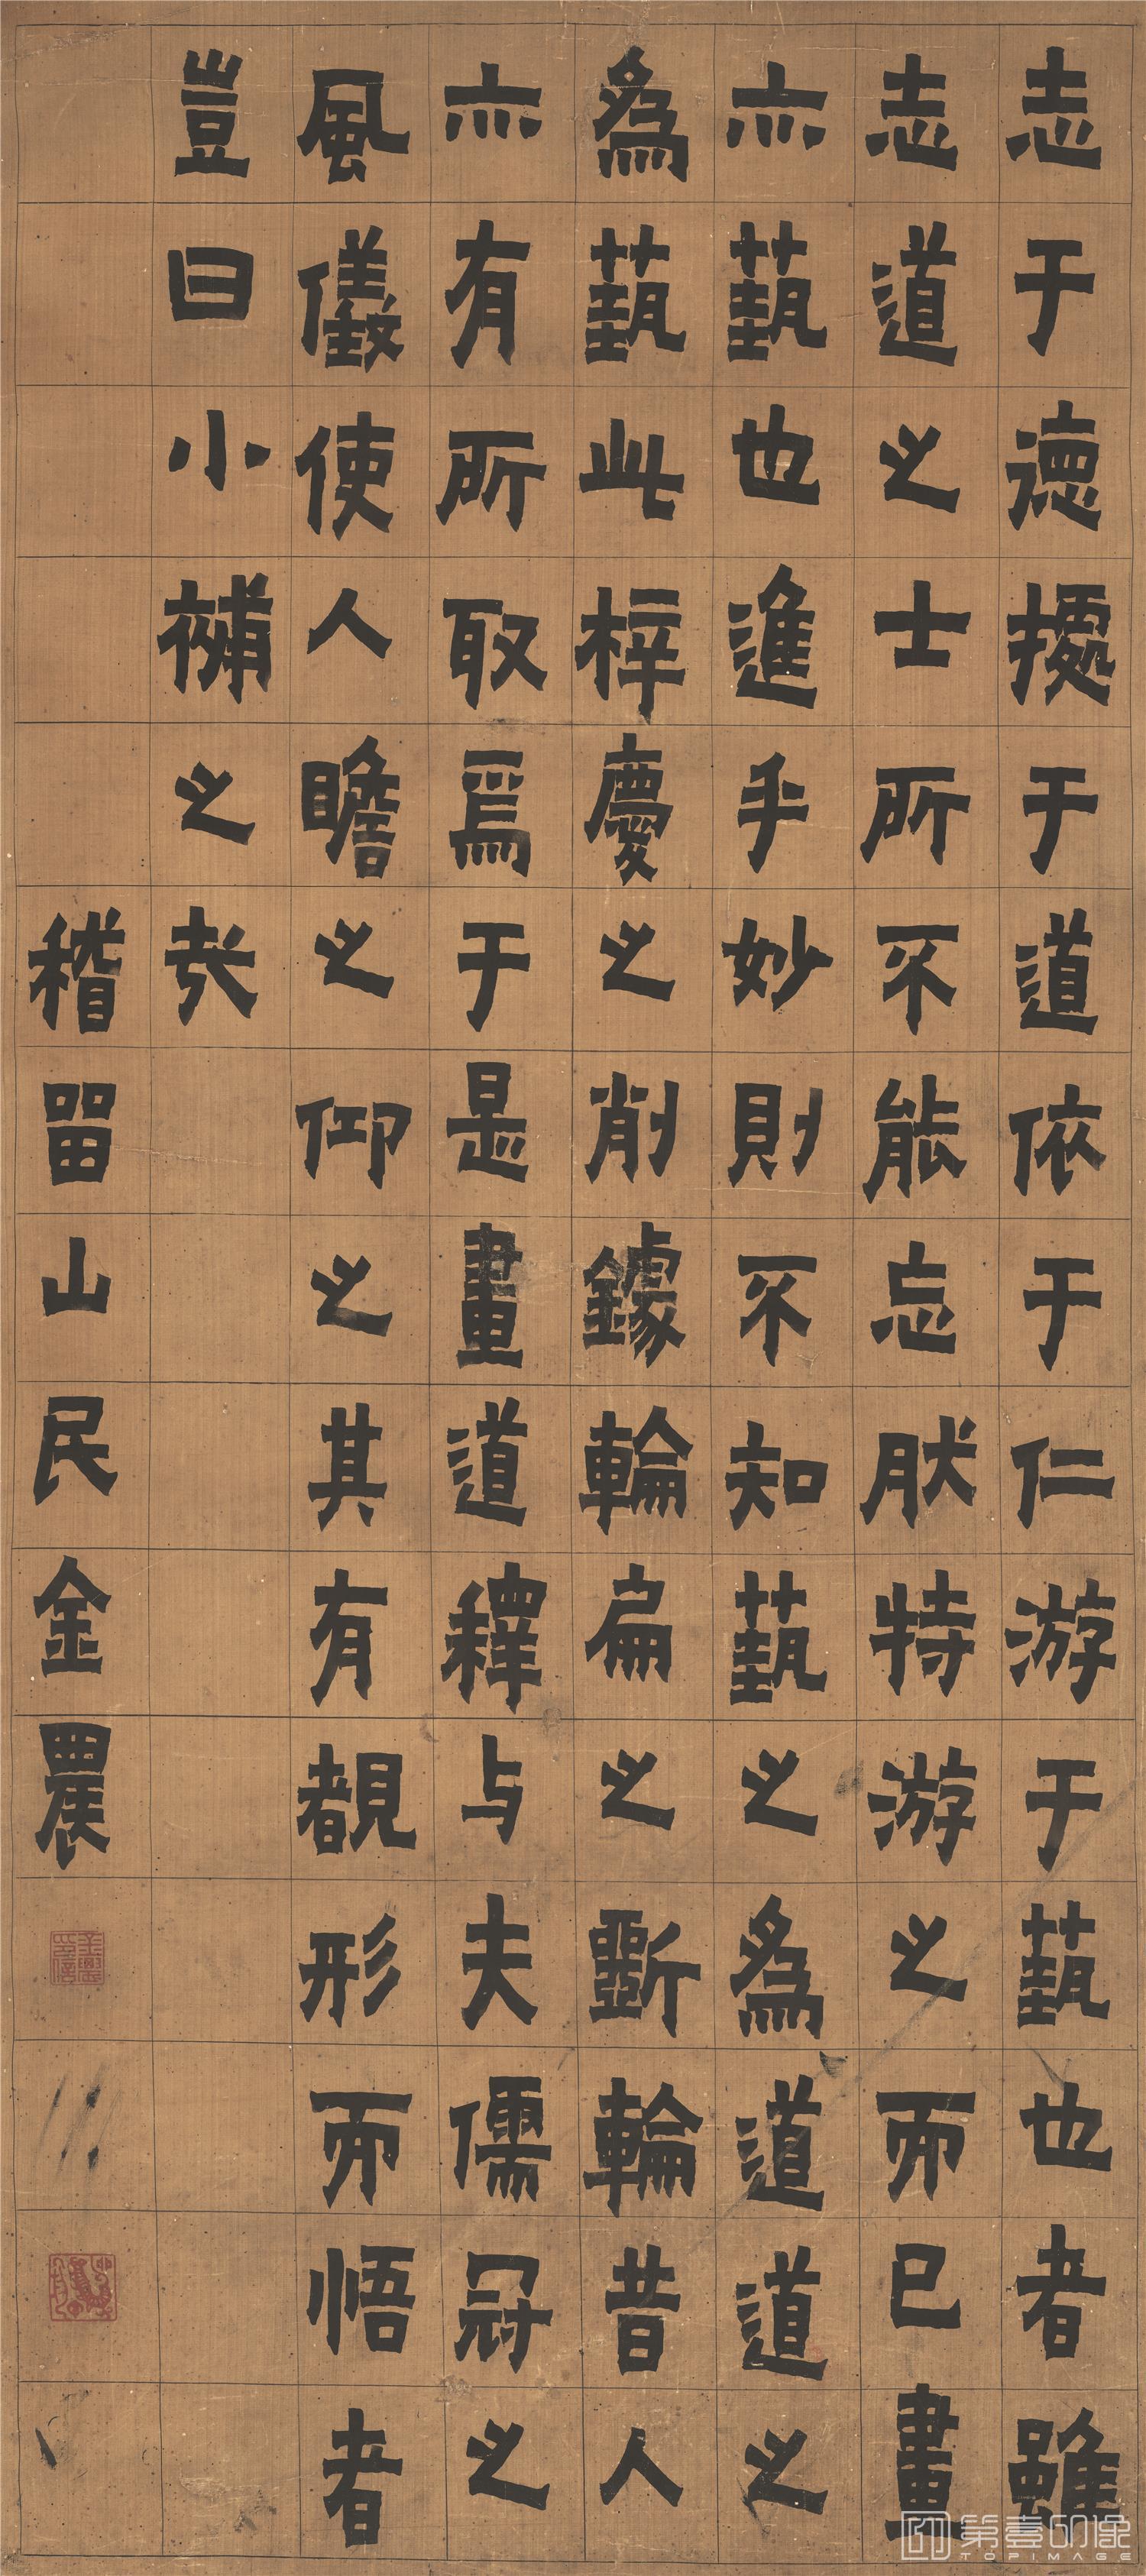 志于德㨿于道依于仁游于藝也者雖
志道之士所不能忘肰特游之而已畫
亦藝也進乎妙則不知藝之為道道之
為藝此梓慶之削鐻輪扁之斲輪昔人
亦有所取焉于是畫道釋与夫儒冠之
風儀使人瞻之仰之其有覩形而悟者
豈曰小補之哉
稽留山民金農
金農印信
第壹印像
TOPIMAGE